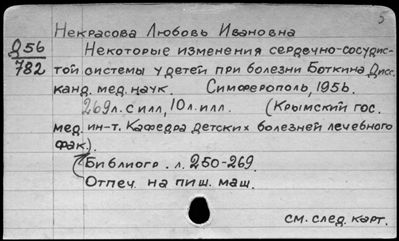 5
Некрасова Любовь Ивановна
Д56
782
Некоторые изменения сердечно-сосудис-
той системы у детей при болезни Боткина Дисс.
канд. мед. наук. Симферополь, 1956.
269л. с илл, 10л. илл. (Крымский гос.
мед. ин-т. Кафедра детских болезней лечебного
фак.).
(Библиогр. л. 250-269.
Отпеч. на пиш. маш.
см. след. карт.